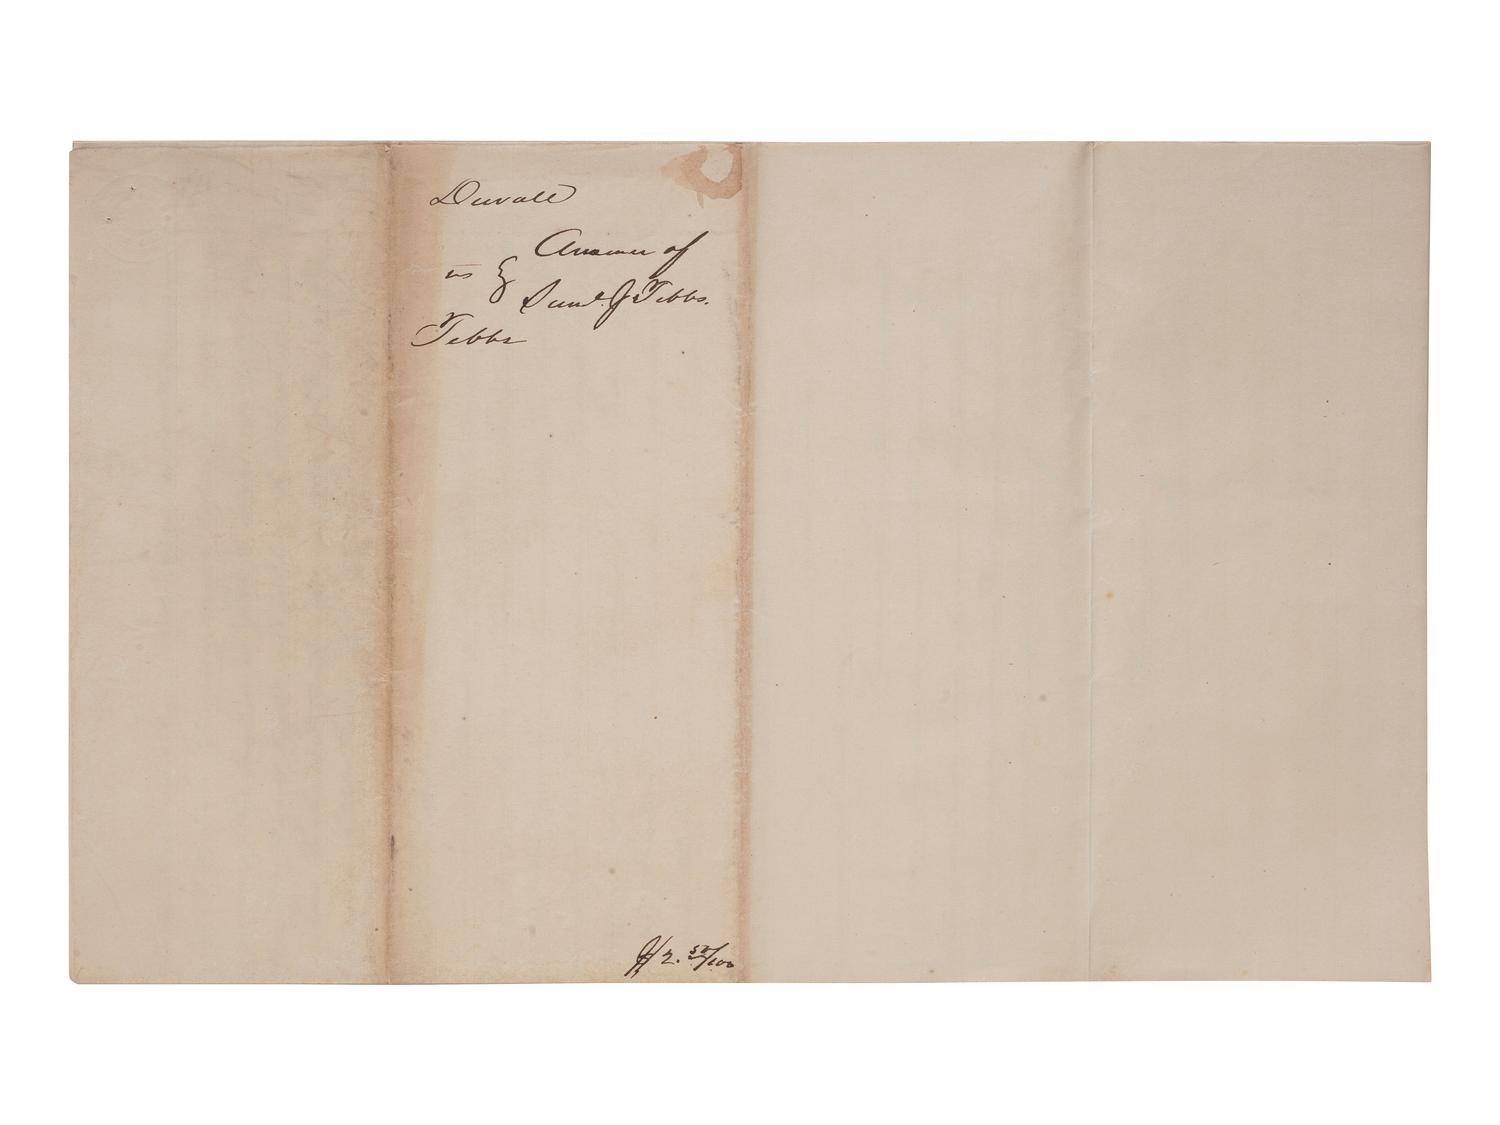 Duvall
vs } Answer of
Saml. J Tebbs.
Tebbs
$2. 50/100